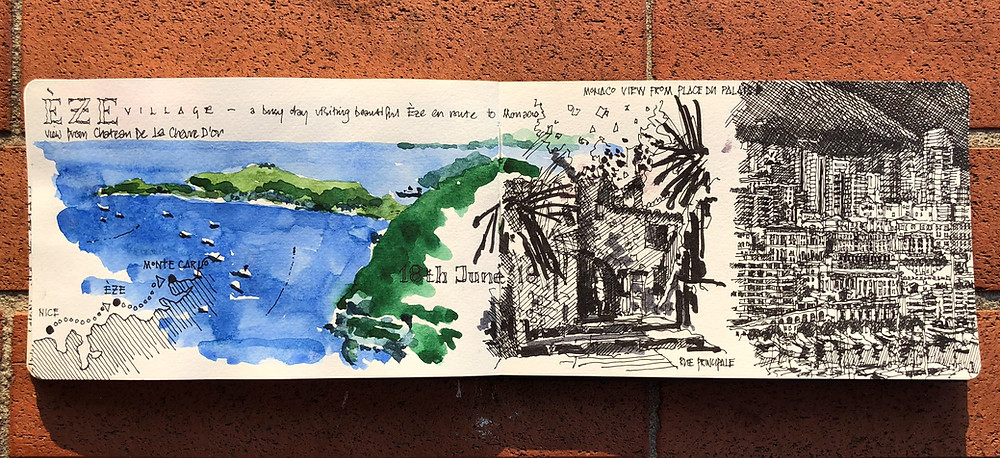 ÈZE VILLAGE - a busy day visiting beautiful Èze en route to Monaco
View from Chateau De La Chevre D'or
MONACO VIEW FROM PLACE DU PALAIS
MONTE CARLO
ÈZE
NICE
18th June 18
RUE PRINCIPALE